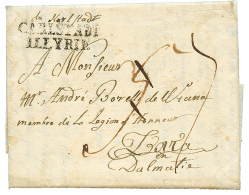 de Karlstadt
CARLSTADT
ILLYRIE
A Monsieur
Mr. André Borelli de Wrana
membre de la Légion d'honneur
Zara
en
Dalmatie